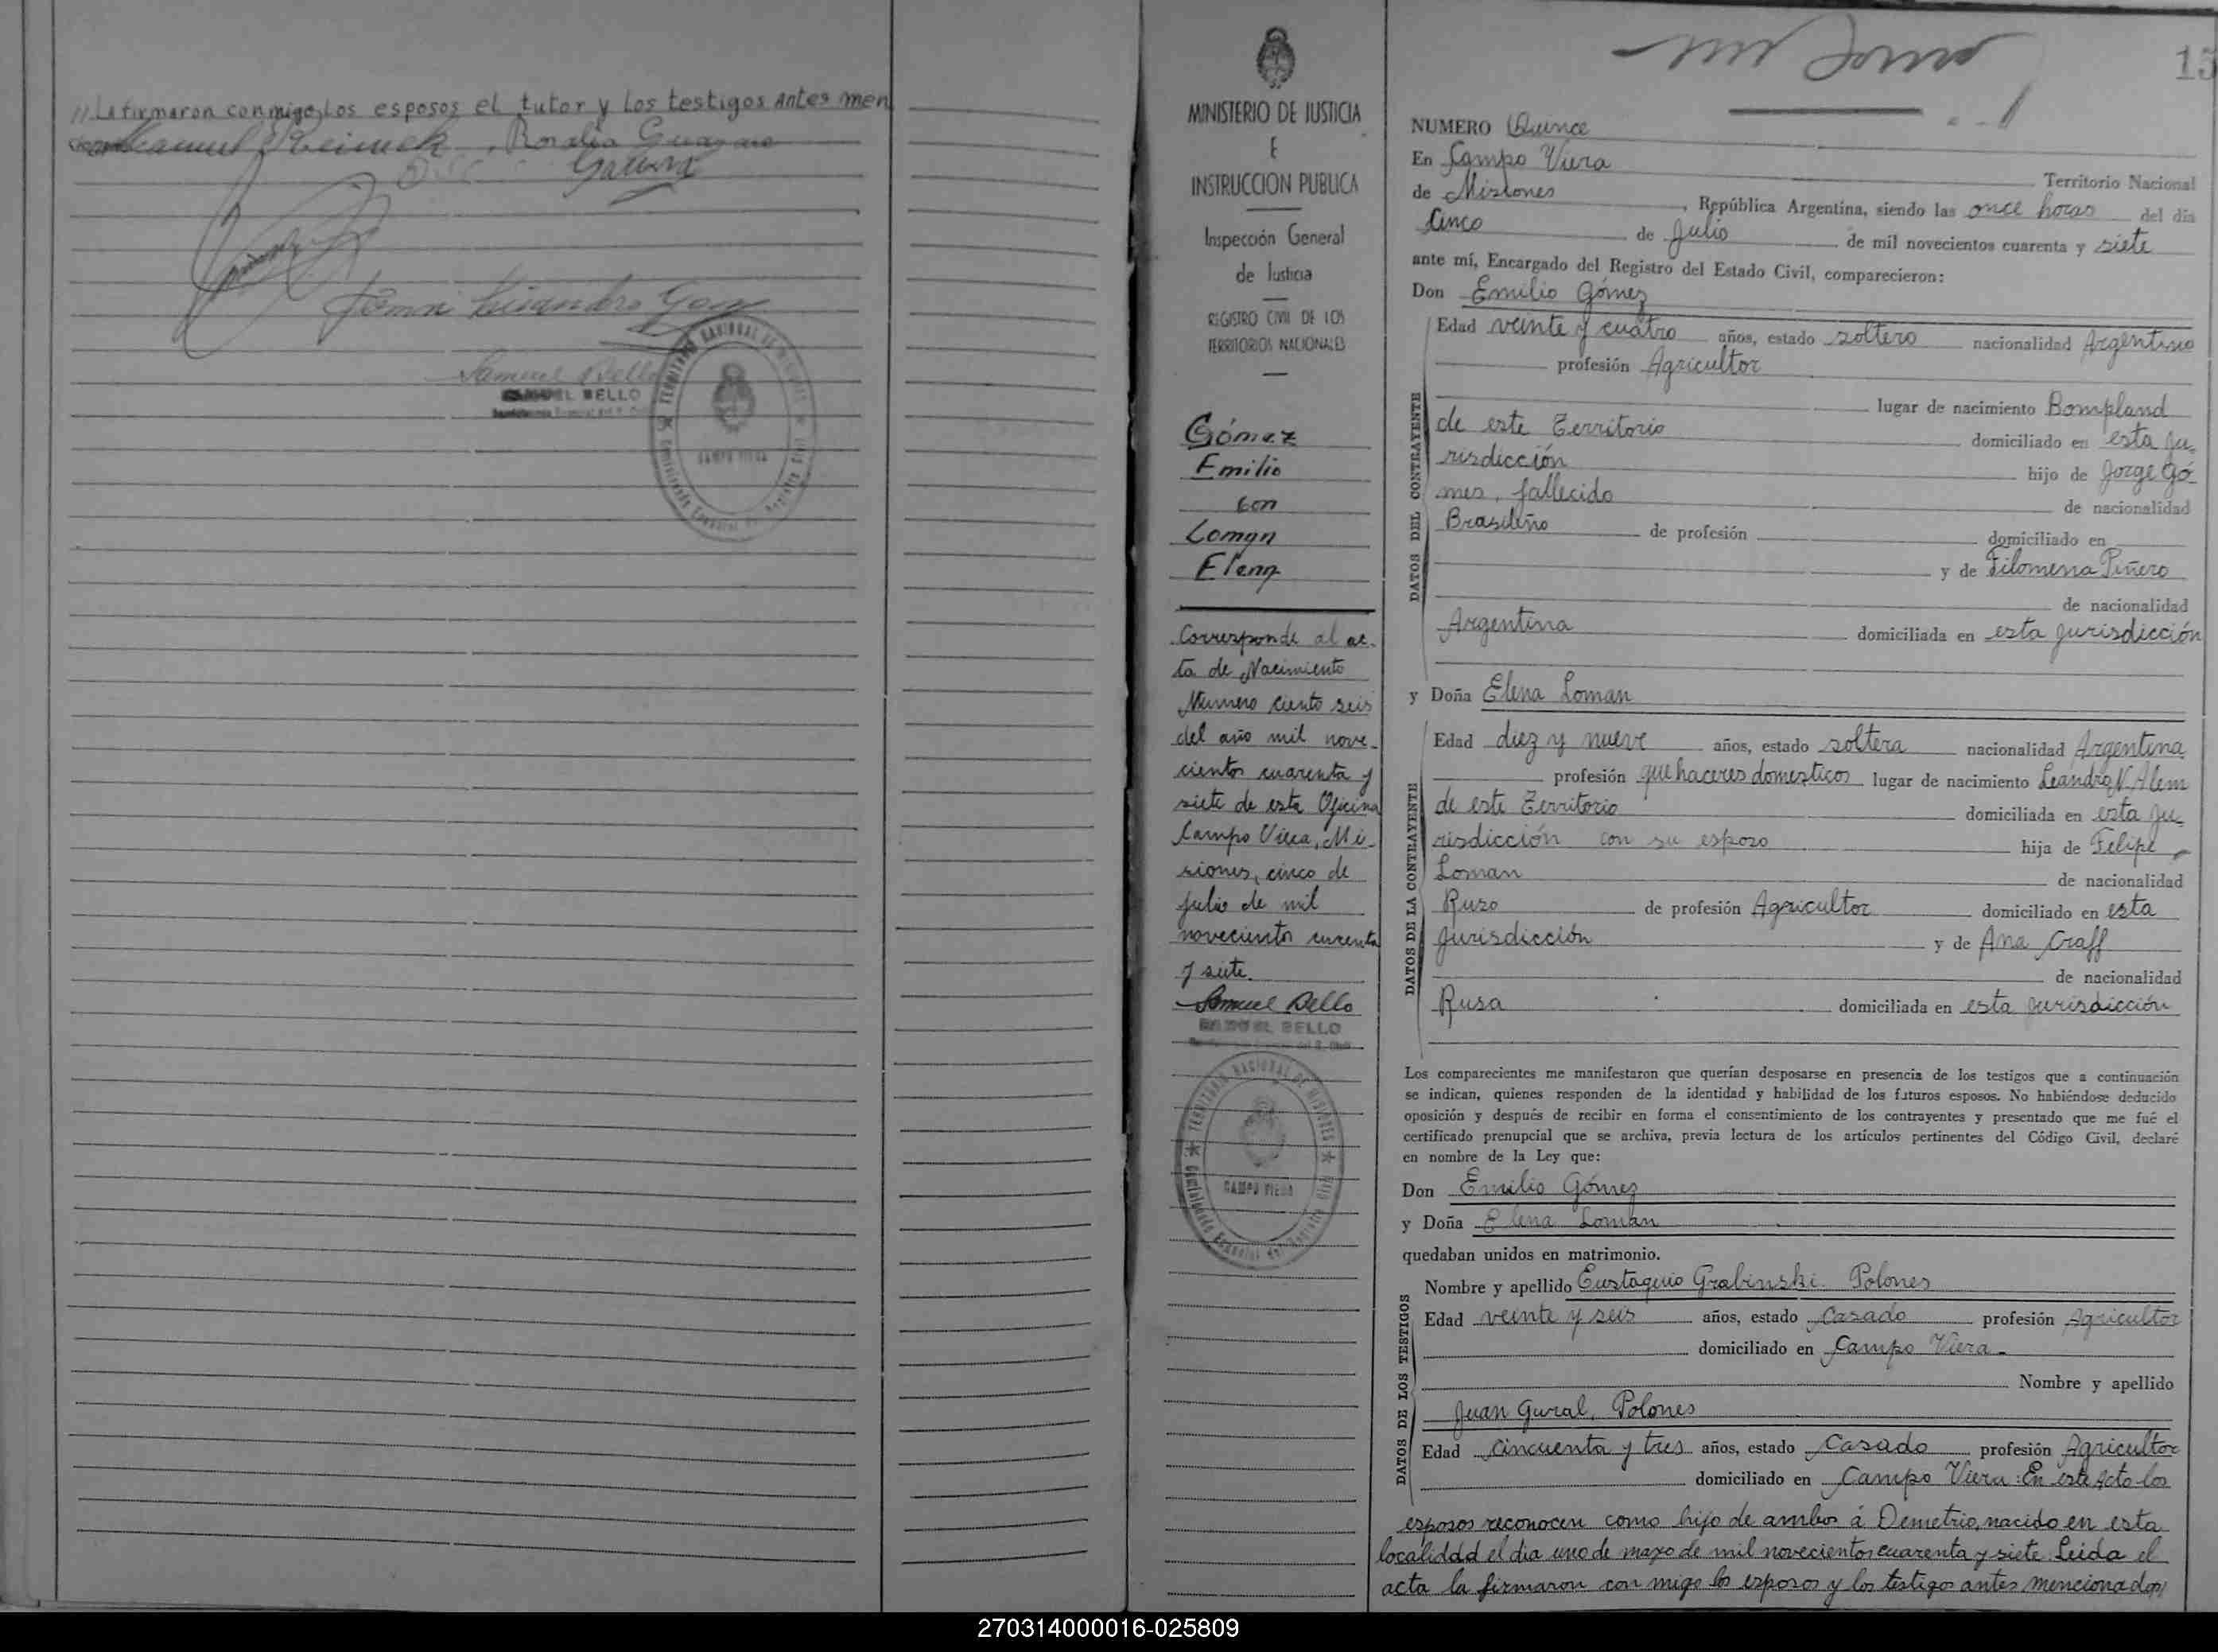 // La firmaron conmigo Los esposos el tutor y Los testigos Antes men
Rosalia
Samuel Bello
SAMUEL BELLO
TERRITORIO NACIONAL DE MISIONES
CAMPO VIERA
MINISTERIO DE JUSTICIA
E
INSTRUCCION PUBLICA
Inspección General
de Justicia
REGISTRO CIVIL DE LOS
TERRITORIOS NACIONALES
Gómez
Emilio
con
Loman
Elena
Corresponde al ac-
ta de Nacimiento
Número ciento seis
del año mil nove-
cientos cuarenta y
siete de esta Oficina
Campo Viera, Mi-
siones, cinco de
julio de mil
novecientos curenta
y siete.
Samuel Bello
SAMUEL BELLO
TERRITORIO NACIONAL DE MISIONES
CAMPO VIERA
15
NUMERO Quince
En Campo Viera
Territorio Nacional
de Misiones, República Argentina, siendo las once horas del día
Cinco de Julio de mil novecientos cuarenta y siete
ante mí, Encargado del Registro del Estado Civil, comparecieron:
Don Emilio Gómez
DATOS DEL CONTRAYENTE
Edad veinte y cuatro años, estado soltero nacionalidad Argentino
profesión Agricultor
lugar de nacimiento Bompland
de este Territorio domiciliado en esta ju-
risdicción hijo de Jorge Gó-
mes, fallecido de nacionalidad
Brasileño de profesión domiciliado en
y de Filomena Piñero
de nacionalidad
Argentina domiciliada en esta jurisdicción
y Doña Elena Loman
DATOS DE LA CONTRAYENTE
Edad diez y nueve años, estado soltera nacionalidad Argentina
profesión quehaceres domesticos lugar de nacimiento Leandro N. Alem
de este Territorio domiciliada en esta ju-
risdicción con su esposo hija de Felipe
Loman de nacionalidad
Ruso de profesión Agricultor domiciliado en esta
jurisdicción y de Ana Craff
de nacionalidad
Rusa domiciliada en esta jurisdicción
Los comparecientes me manifestaron que querían desposarse en presencia de los testigos que a continuación
se indican, quienes responden de la identidad y habilidad de los futuros esposos. No habiéndose deducido
oposición y después de recibir en forma el consentimiento de los contrayentes y presentado que me fué el
certificado prenupcial que se archiva, previa lectura de los artículos pertinentes del Código Civil, declaré
en nombre de la Ley que:
Don Emilio Gómez
y Doña Elena Loman
quedaban unidos en matrimonio.
DATOS DE LOS TESTIGOS
Nombre y apellido Eustaquio Grabinski. Polones
Edad veinte y seis años, estado Casado profesión Agricultor
domiciliado en Campo Viera
Nombre y apellido
Juan Gural, Polones
Edad cincuenta y tres años, estado Casado profesión Agricultor
domiciliado en Campo Viera: En este Acto los
esposos reconocen como hijo de ambos á Demetrio, nacido en esta
localidad el dia uno de mayo de mil novecientos cuarenta y siete. Leida el
acta la firmaron con migo los esposos y los testigos antes mencionados//
270314000016-025809